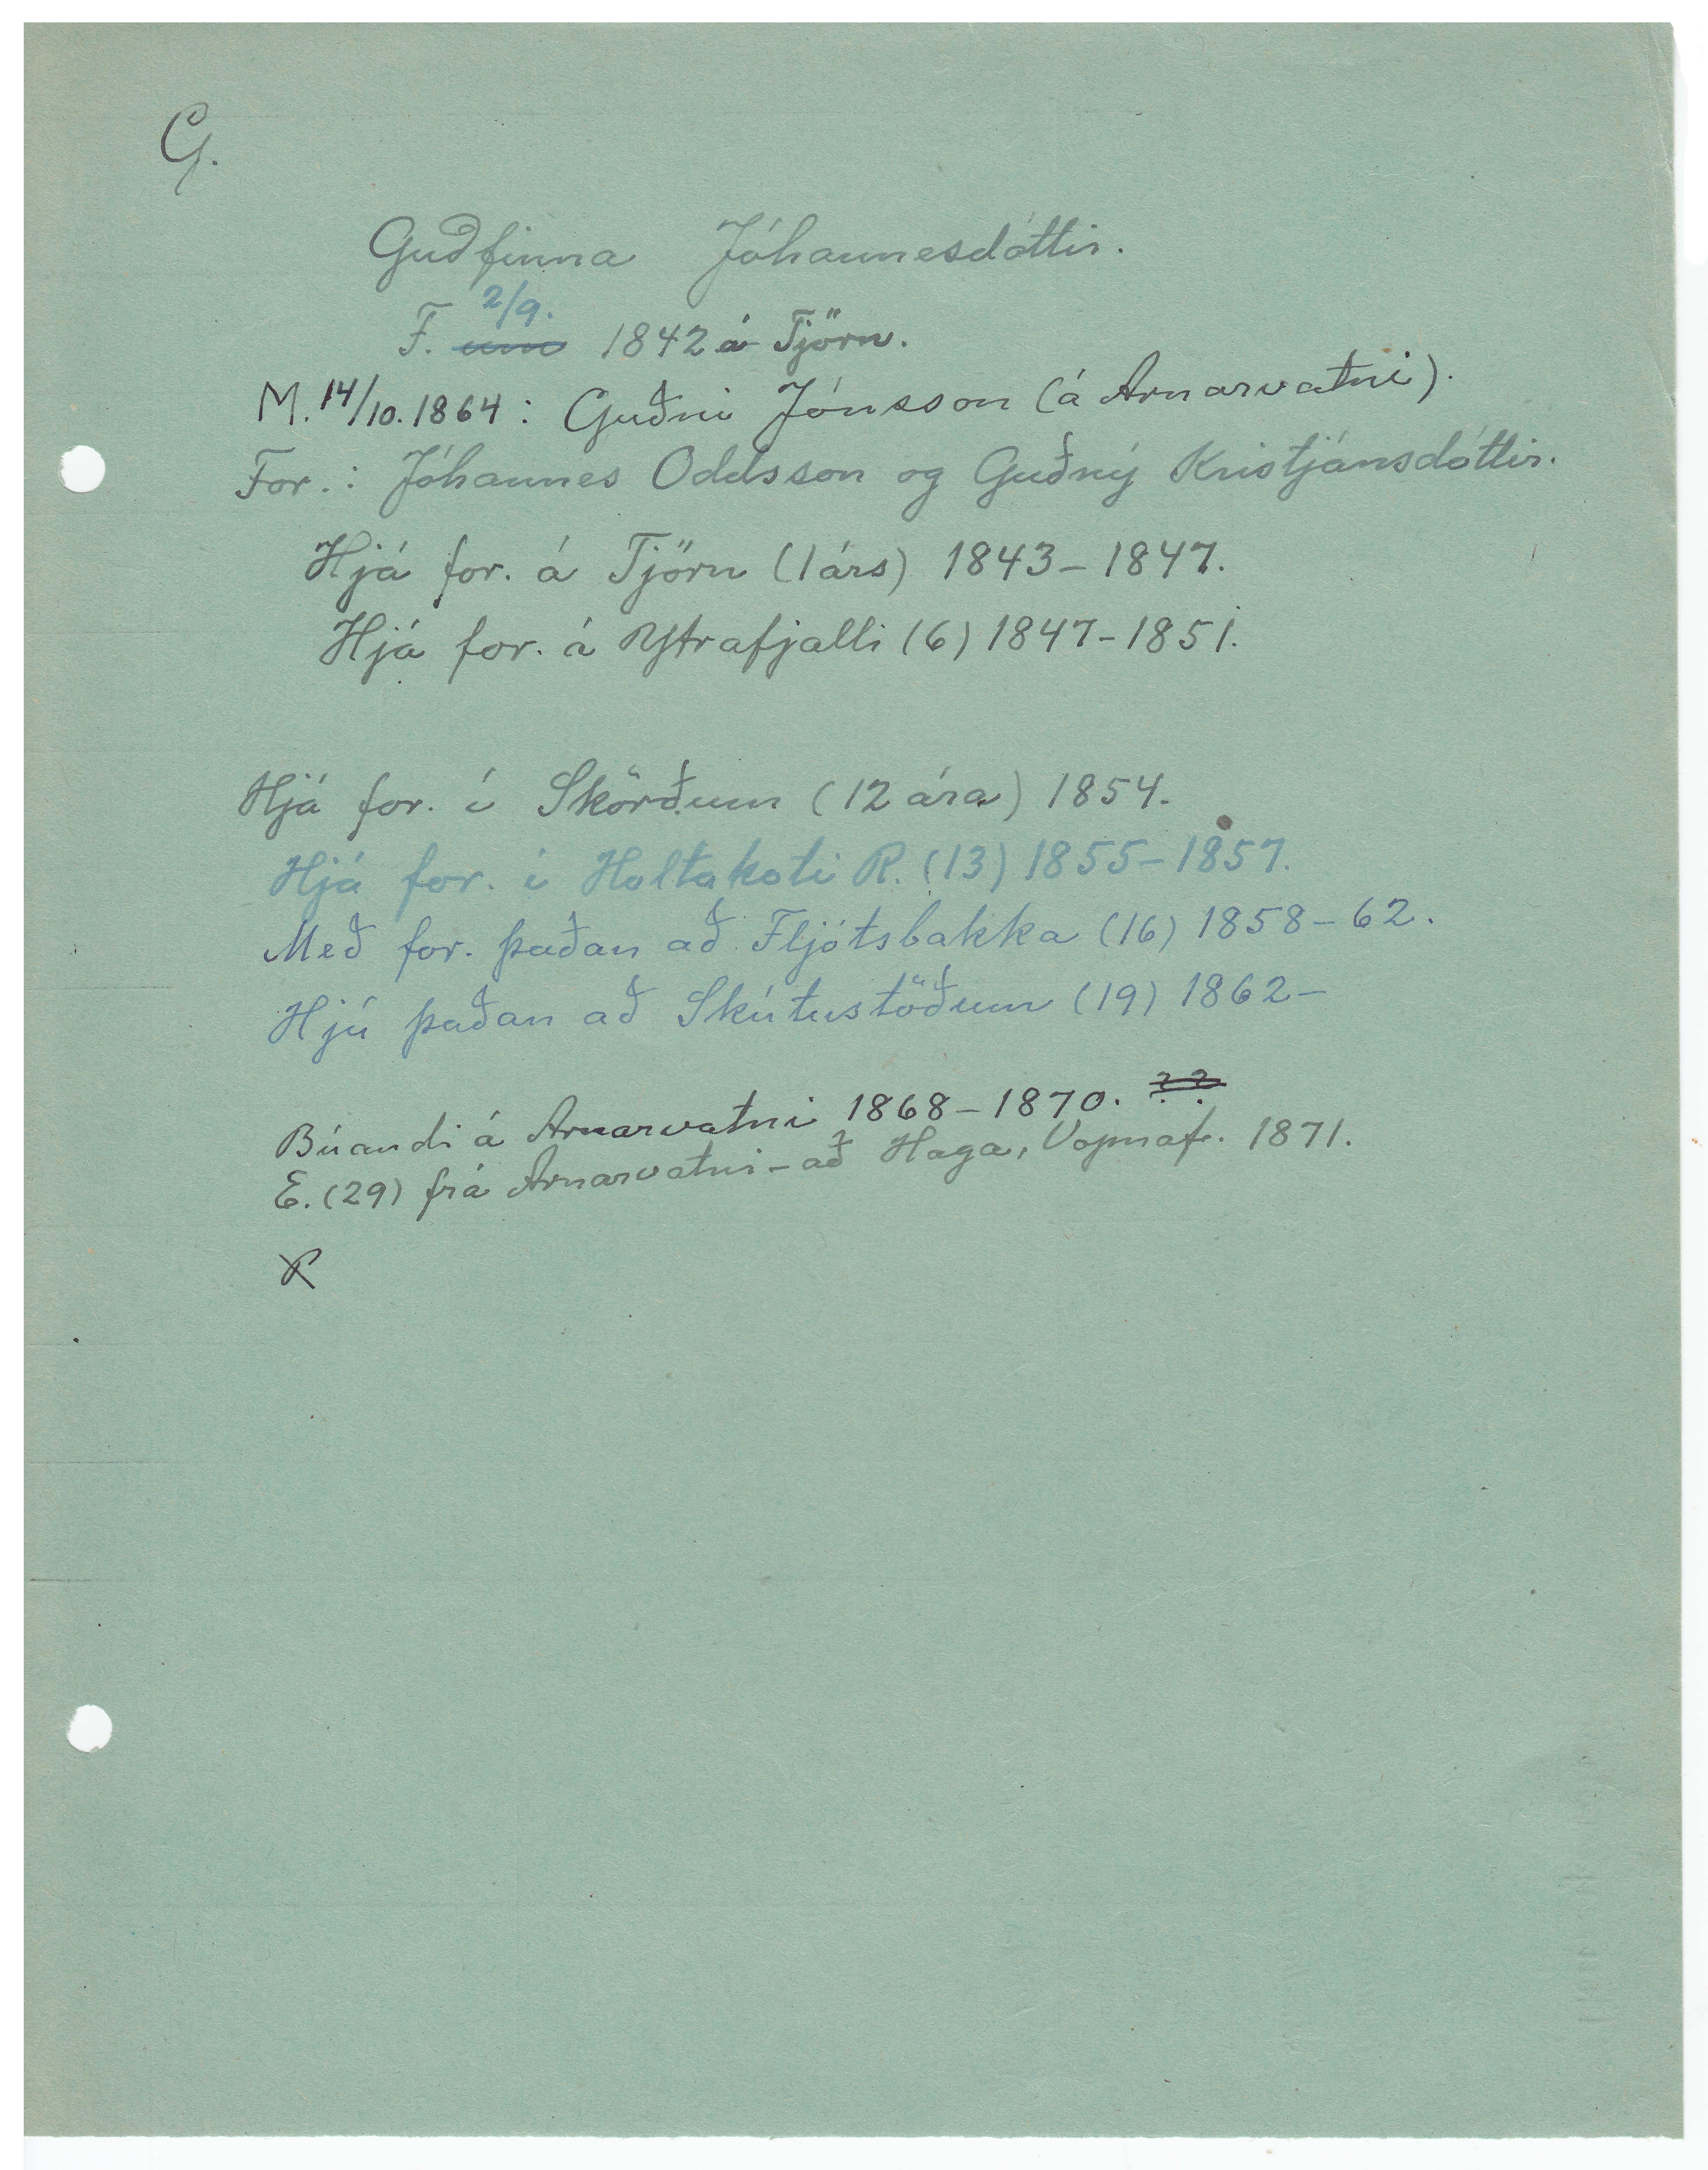 G.
Guðfinna Jóhannesdóttir.
2/9.
F. um 1842 á Tjörn.
M. 14/10. 1864 : Guðni Jónsson (á Arnarvatni).
For. : Jóhannes Oddsson og Guðný Kristjánsdóttir.
Hjá for. á Tjörn (1 árs) 1843 - 1847.
Hjá for. á Ytrafjalli (6) 1847 - 1851.
Hjá for. í Skörðum (12 ára) 1854.
Hjá for. í Holtakoti R. (13) 1855 - 1857.
Með for. þaðan að Fljótsbakka (16) 1858 - 62.
Hjú þaðan að Skútustöðum (19) 1862 -
Búandi á Arnarvatni 1868 - 1870. ? ?
E. (29) frá Arnarvatni - að Haga, Vopnaf. 1871.